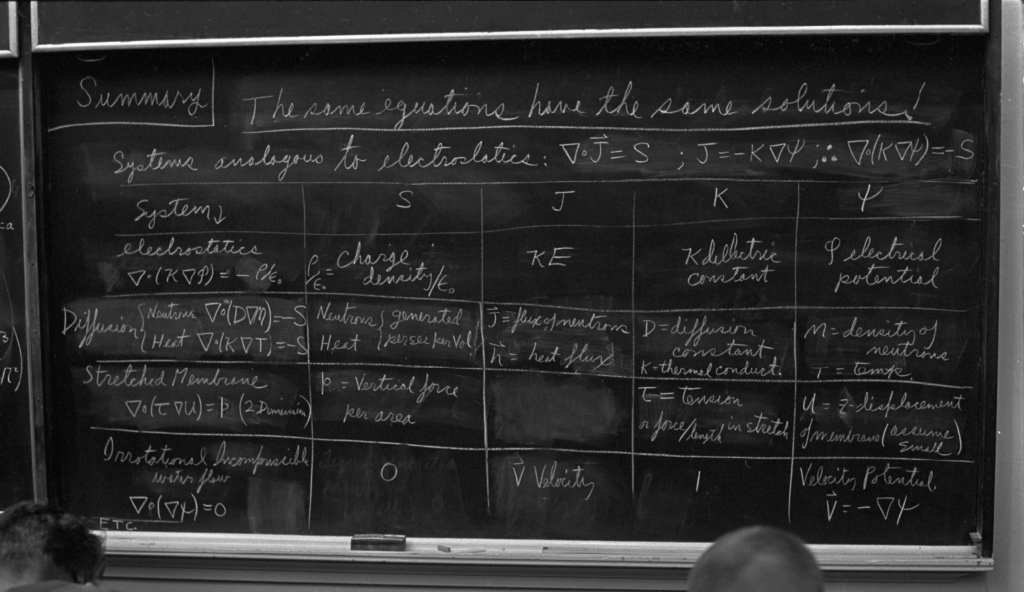 Summary
The same equations have the same solutions!
Systems analogous to electrostatics: ∇·J⃗ = S ; J = -K∇Ψ ; ∴ ∇·(K∇Ψ) = -S
System↓ S J K Ψ
electrostatics
∇·(K∇φ) = -ρ/ε₀
ρ/ε₀ = charge
density/ε₀
KE
K dielectric
constant
φ electrical
potential
Diffusion { Neutrons ∇·(D∇n) = -S
{ Heat ∇·(K∇T) = -S
Neutrons { generated
Heat { per sec per Vol.
J⃗ = flux of neutrons
h⃗ = heat flux
D = diffusion
constant
K = thermal conduct.
n = density of
neutrons
T = temp.
Stretched Membrane
∇·(τ∇u) = p (2-Dimension)
p = Vertical force
per area
τ = Tension
or force/length in stretch
u = z-displacement
of membrane (assume
small)
Irrotational Incompressible
water flow
∇·(∇ψ) = 0
0
V⃗ Velocity
1
Velocity Potential.
V⃗ = -∇Ψ
ETC.